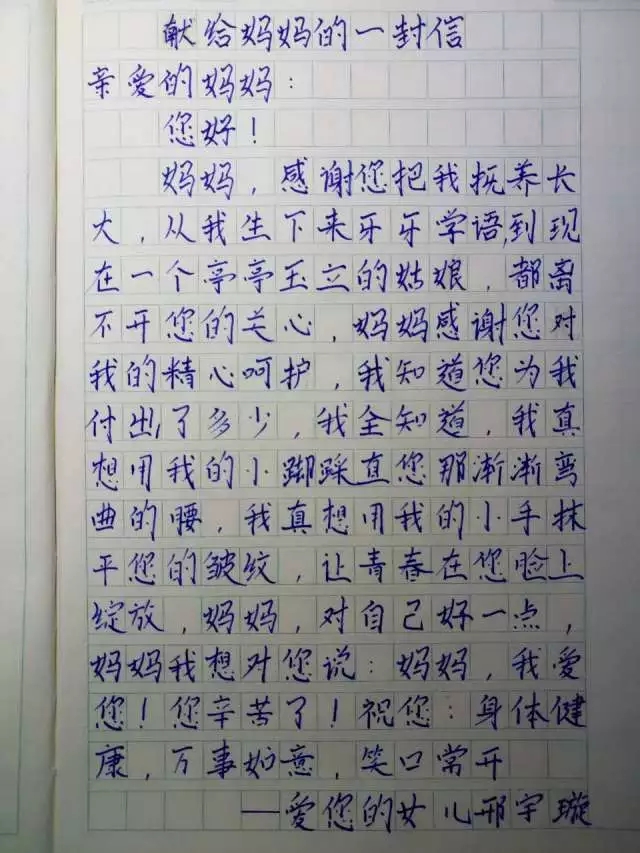 献给妈妈的一封信
亲爱的妈妈：
您好！
妈妈，感谢您把我抚养长
大，从我生下来牙牙学语，到现
在一个亭亭玉立的姑娘，都离
不开您的关心，妈妈感谢您对
我的精心呵护，我知道您为我
付出了多少，我全知道，我真
想用我的小脚踩直您那渐渐弯
曲的腰，我真想用我的小手抹
平您的皱纹，让青春在您脸上
绽放，妈妈，对自己好一点，
妈妈我想对您说：妈妈，我爱
您！您辛苦了！祝您：身体健
康，万事如意，笑口常开
——爱您的女儿邢宇璇